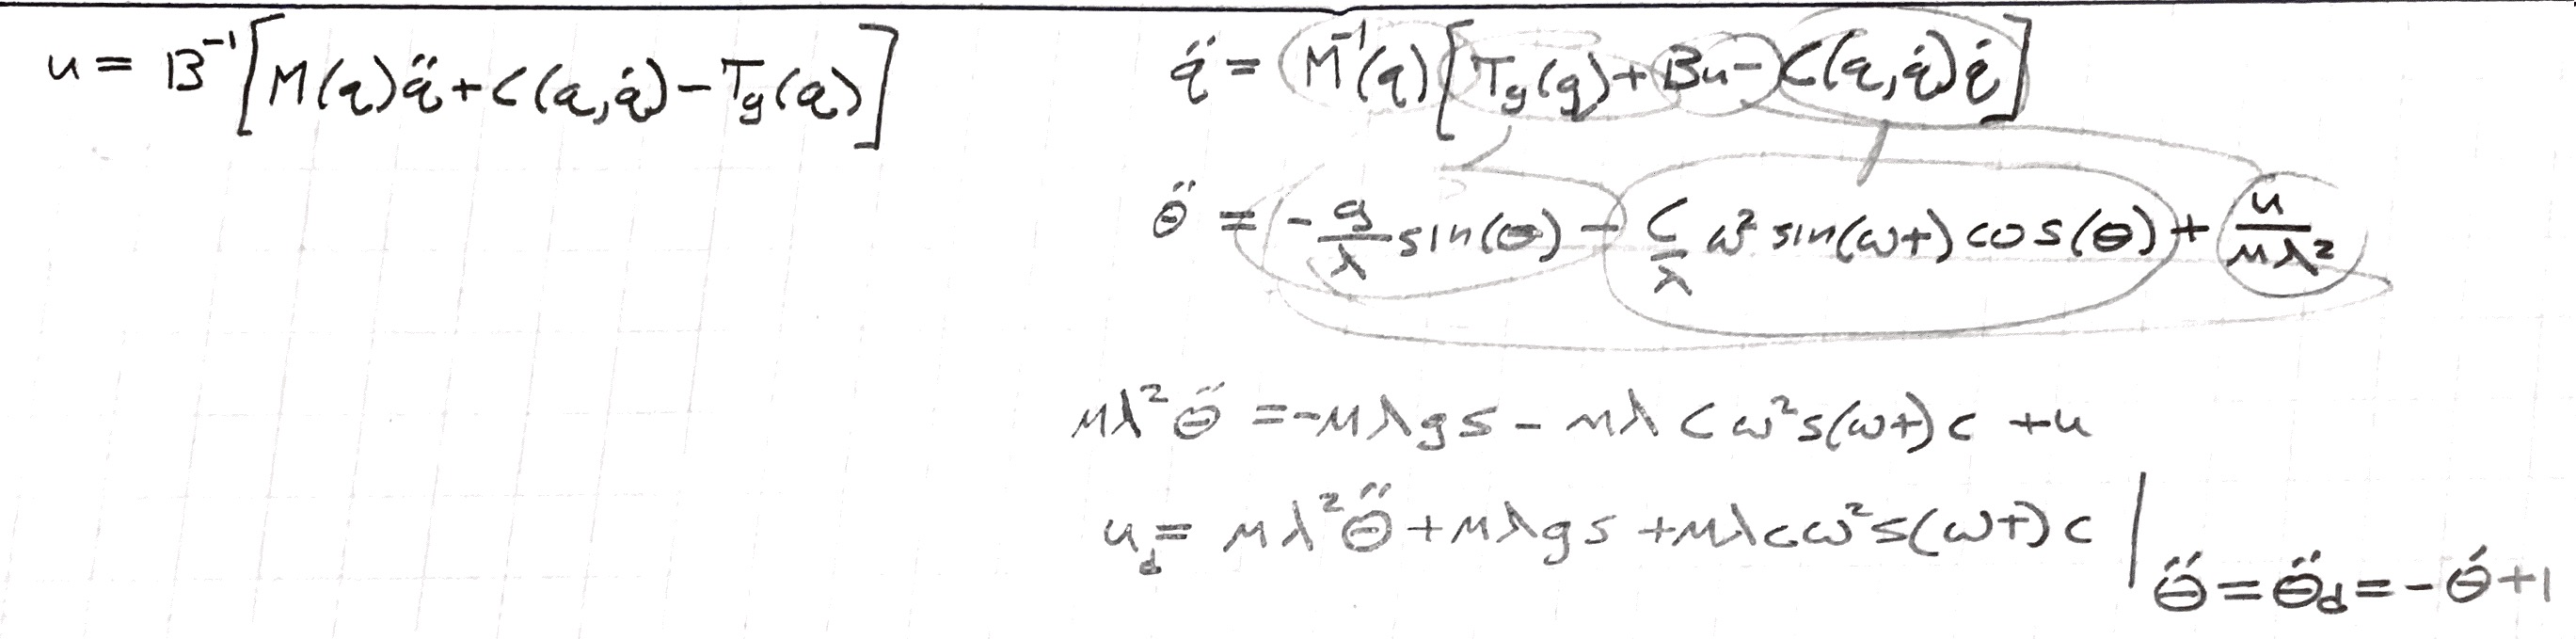 u = B⁻¹[M(q)q̈ + C(q,q̇) - T_g(q)]
q̈ = M⁻¹(q)[T_g(q) + Bu - C(q,q̇)q̇]
θ̈ = -g/λ sin(θ) - C/λ ω² sin(ωt) cos(θ) + u/mλ²
mλ²θ̈ = -mλgs - mλCω²s(ωt)c + u
u_d = mλ²θ̈ + mλgs + mλcω²s(ωt)c |θ̈ = θ̈_d = -θ̇ + 1